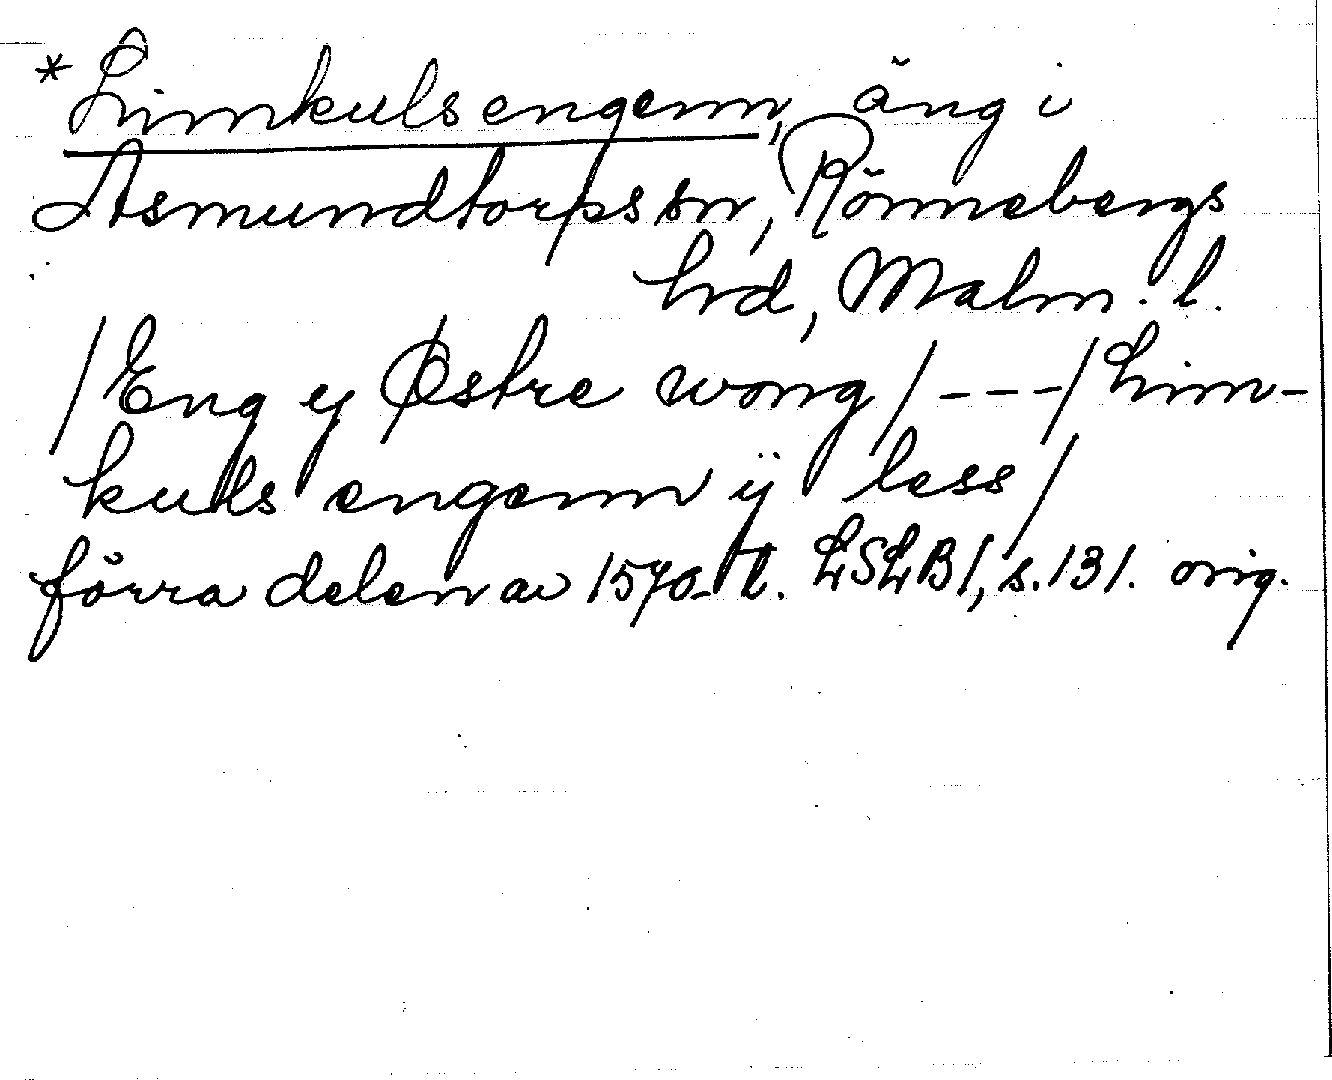 *Limkuls engenn, äng i
Asmundtorps sn, Rönnebergs
hd, Malm. l.
/Eng y Østre wong/ - - - /Lim-
kuls engenn ÿ less/
förra delen av 1570-t. LSLB1, s. 131. orig.